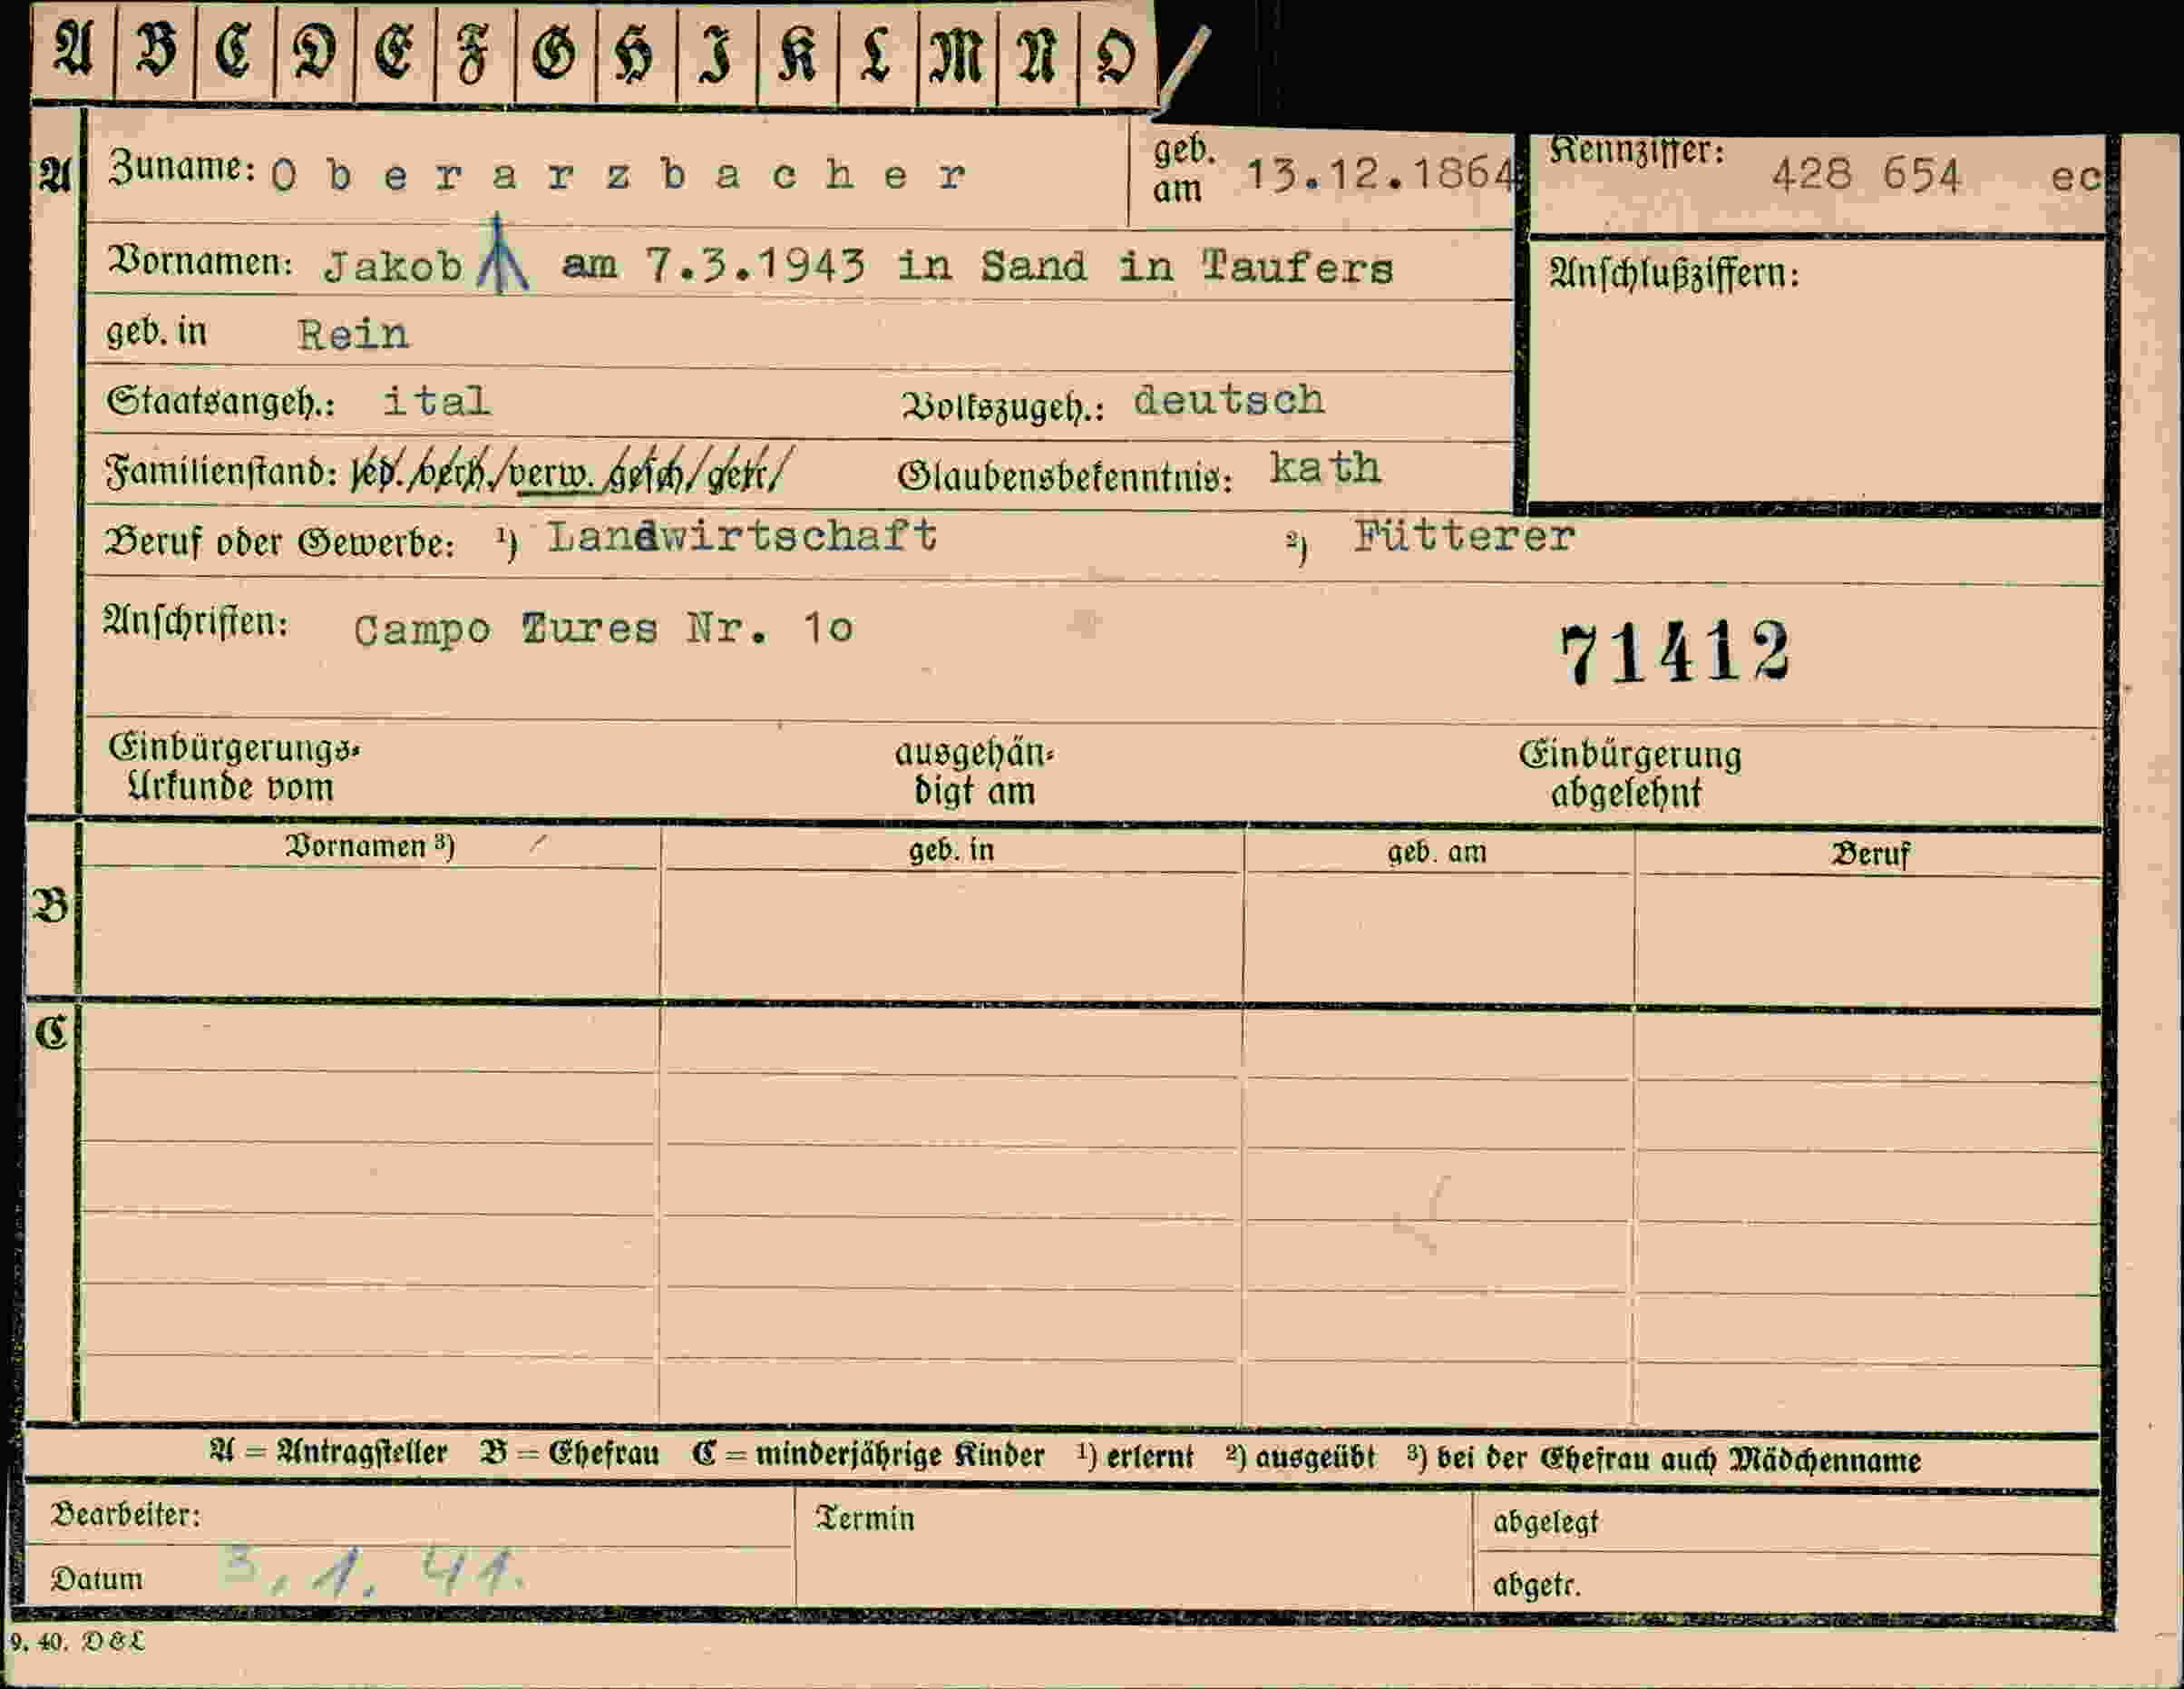 A B C D E F G H I K L M N O
A Zuname: Oberarzbacher geb. am 13.12.1864 Kennziffer: 428 654 ec
Vornamen: Jakob am 7.3.1943 in Sand in Taufers Anschlußziffern:
geb. in Rein
Staatsangeh.: ital Volkszugeh.: deutsch
Familienstand: led./verh./verw./gesch/getr/ Glaubensbekenntnis: kath
Beruf oder Gewerbe: ¹) Landwirtschaft ²) Fütterer
Anschriften: Campo Tures Nr. 1o
71412
Einbürgerungs- ausgehän- Einbürgerung
Urkunde vom digt am abgelehnt
Vornamen ³) geb. in geb. am Beruf
B
C
A = Antragsteller B = Ehefrau C = minderjährige Kinder ¹) erlernt ²) ausgeübt ³) bei der Ehefrau auch Mädchenname
Bearbeiter: Termin abgelegt
Datum 3.1.41. abgetr.
9. 40. D&L